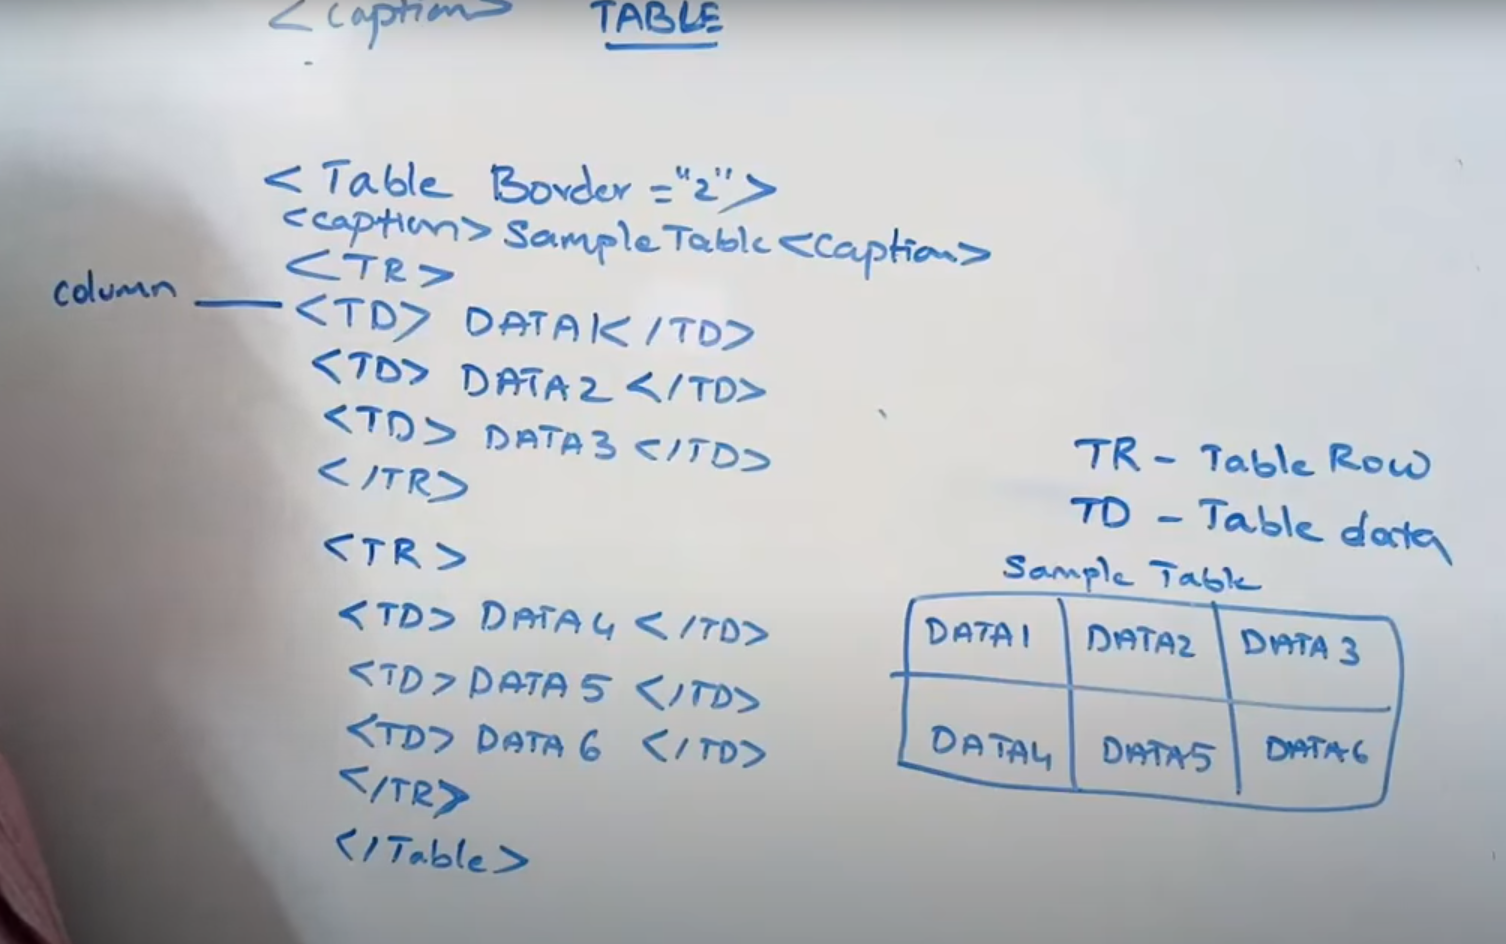 <caption> TABLE
<Table Border="2">
<caption> Sample Table <caption>
<TR>
column — <TD> DATA1</TD>
<TD> DATA2 </TD>
<TD> DATA3 </TD>
</TR>
<TR>
<TD> DATA4 </TD>
<TD> DATA5 </TD>
<TD> DATA6 </TD>
</TR>
</Table>
TR - Table Row
TD - Table data
Sample Table
DATA1 DATA2 DATA3
DATA4 DATA5 DATA6